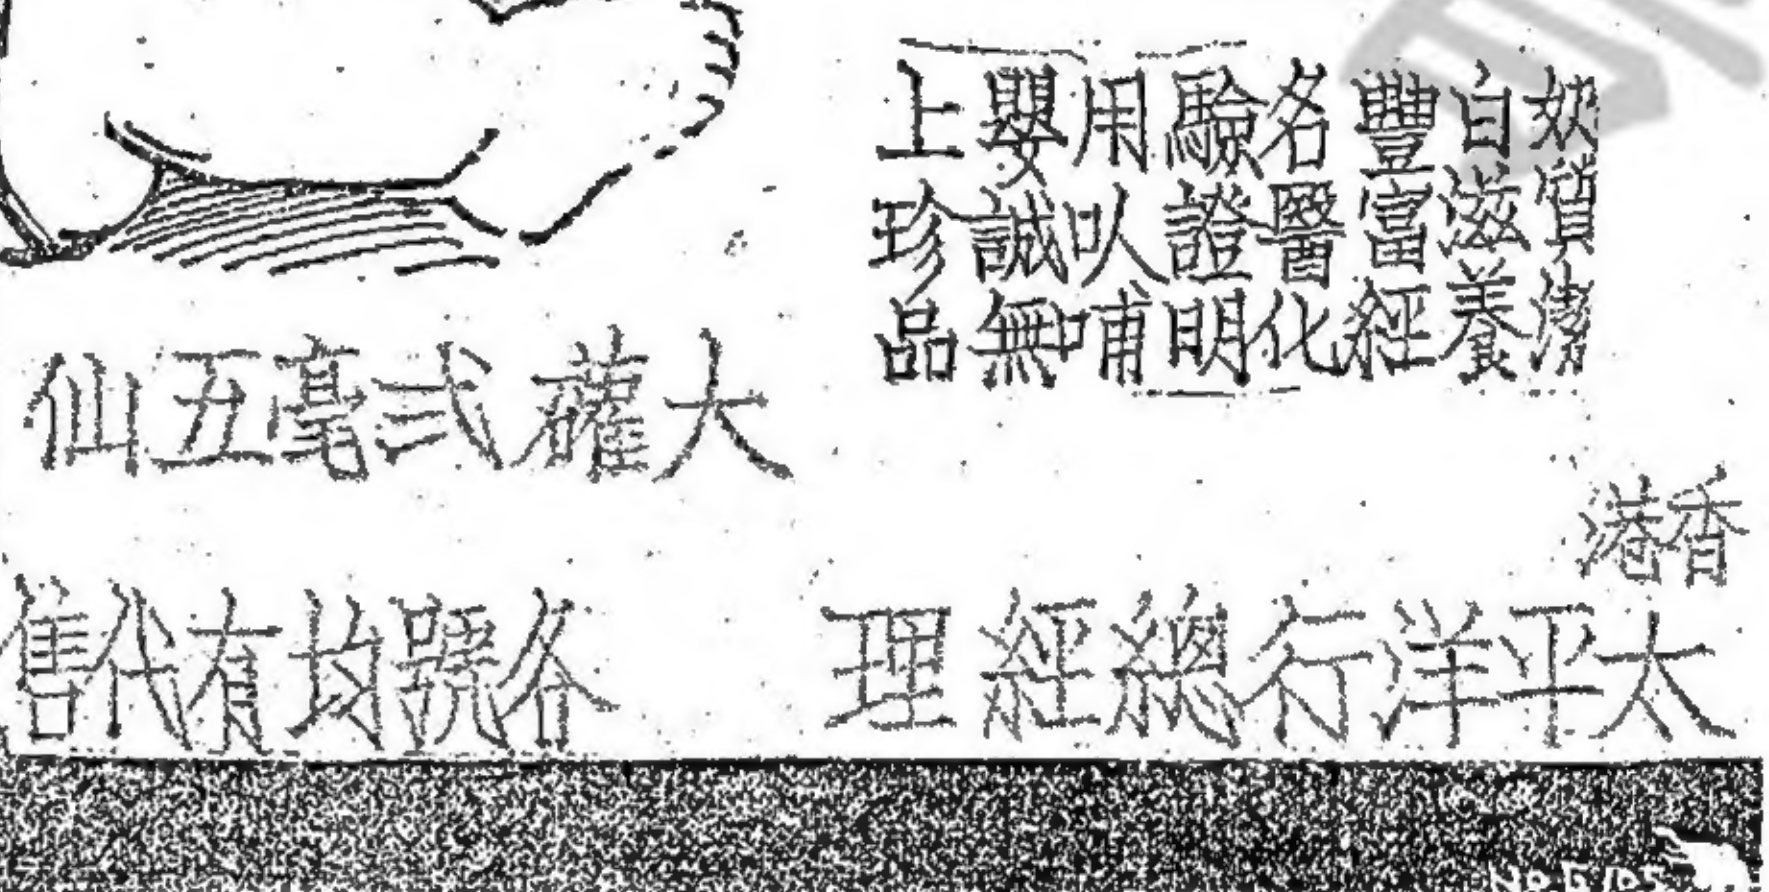 奶質潔
白滋養
豐富經
名醫化
驗證明
用以哺
嬰誠無
上珍品
大罐弍毫五仙
香港
太平洋行總經理
各號均有代售